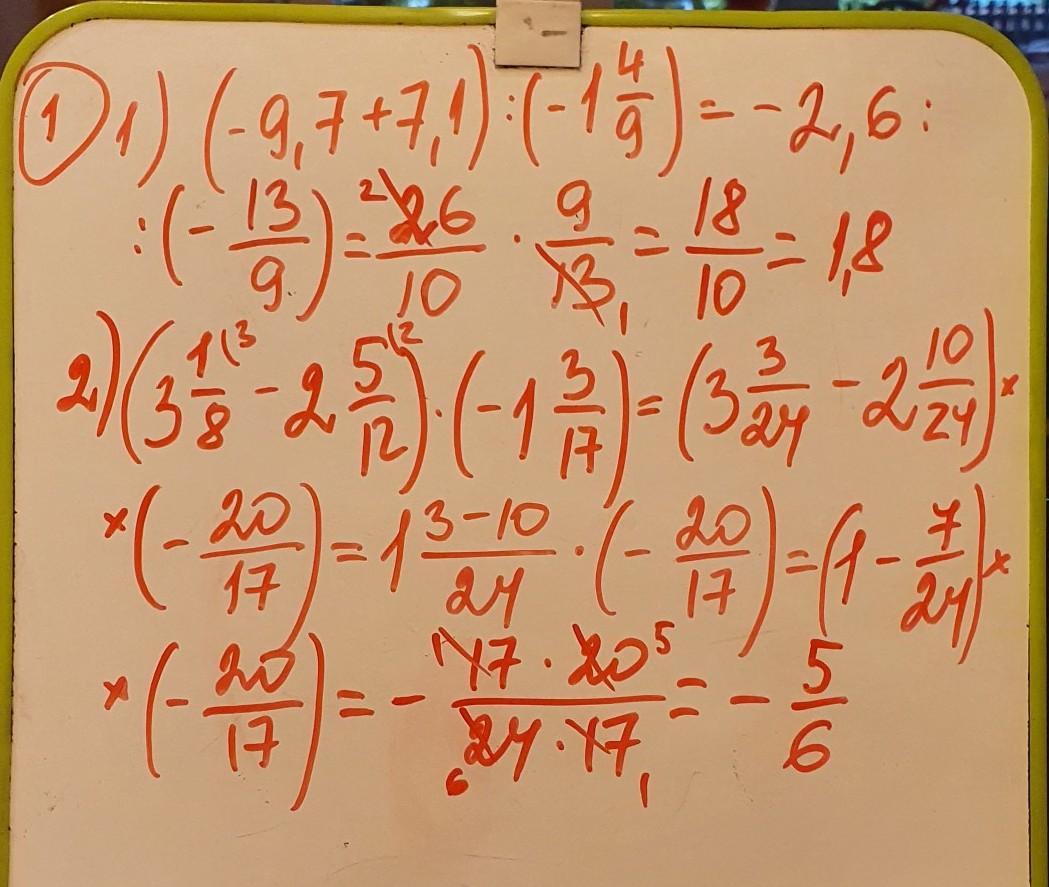 ① 1) (-9,7+7,1):(-1 4/9)=-2,6:
:(-13/9)=²26/10·9/13₁=18/10=1,8
2)(3 1⁽³/8-2 5⁽²/12)·(-1 3/17)=(3 3/24-2 10/24)×
×(-20/17)=1 3-10/24·(-20/17)=(1-7/24)×
×(-20/17)=-¹17·20⁵/₆24·17₁=-5/6